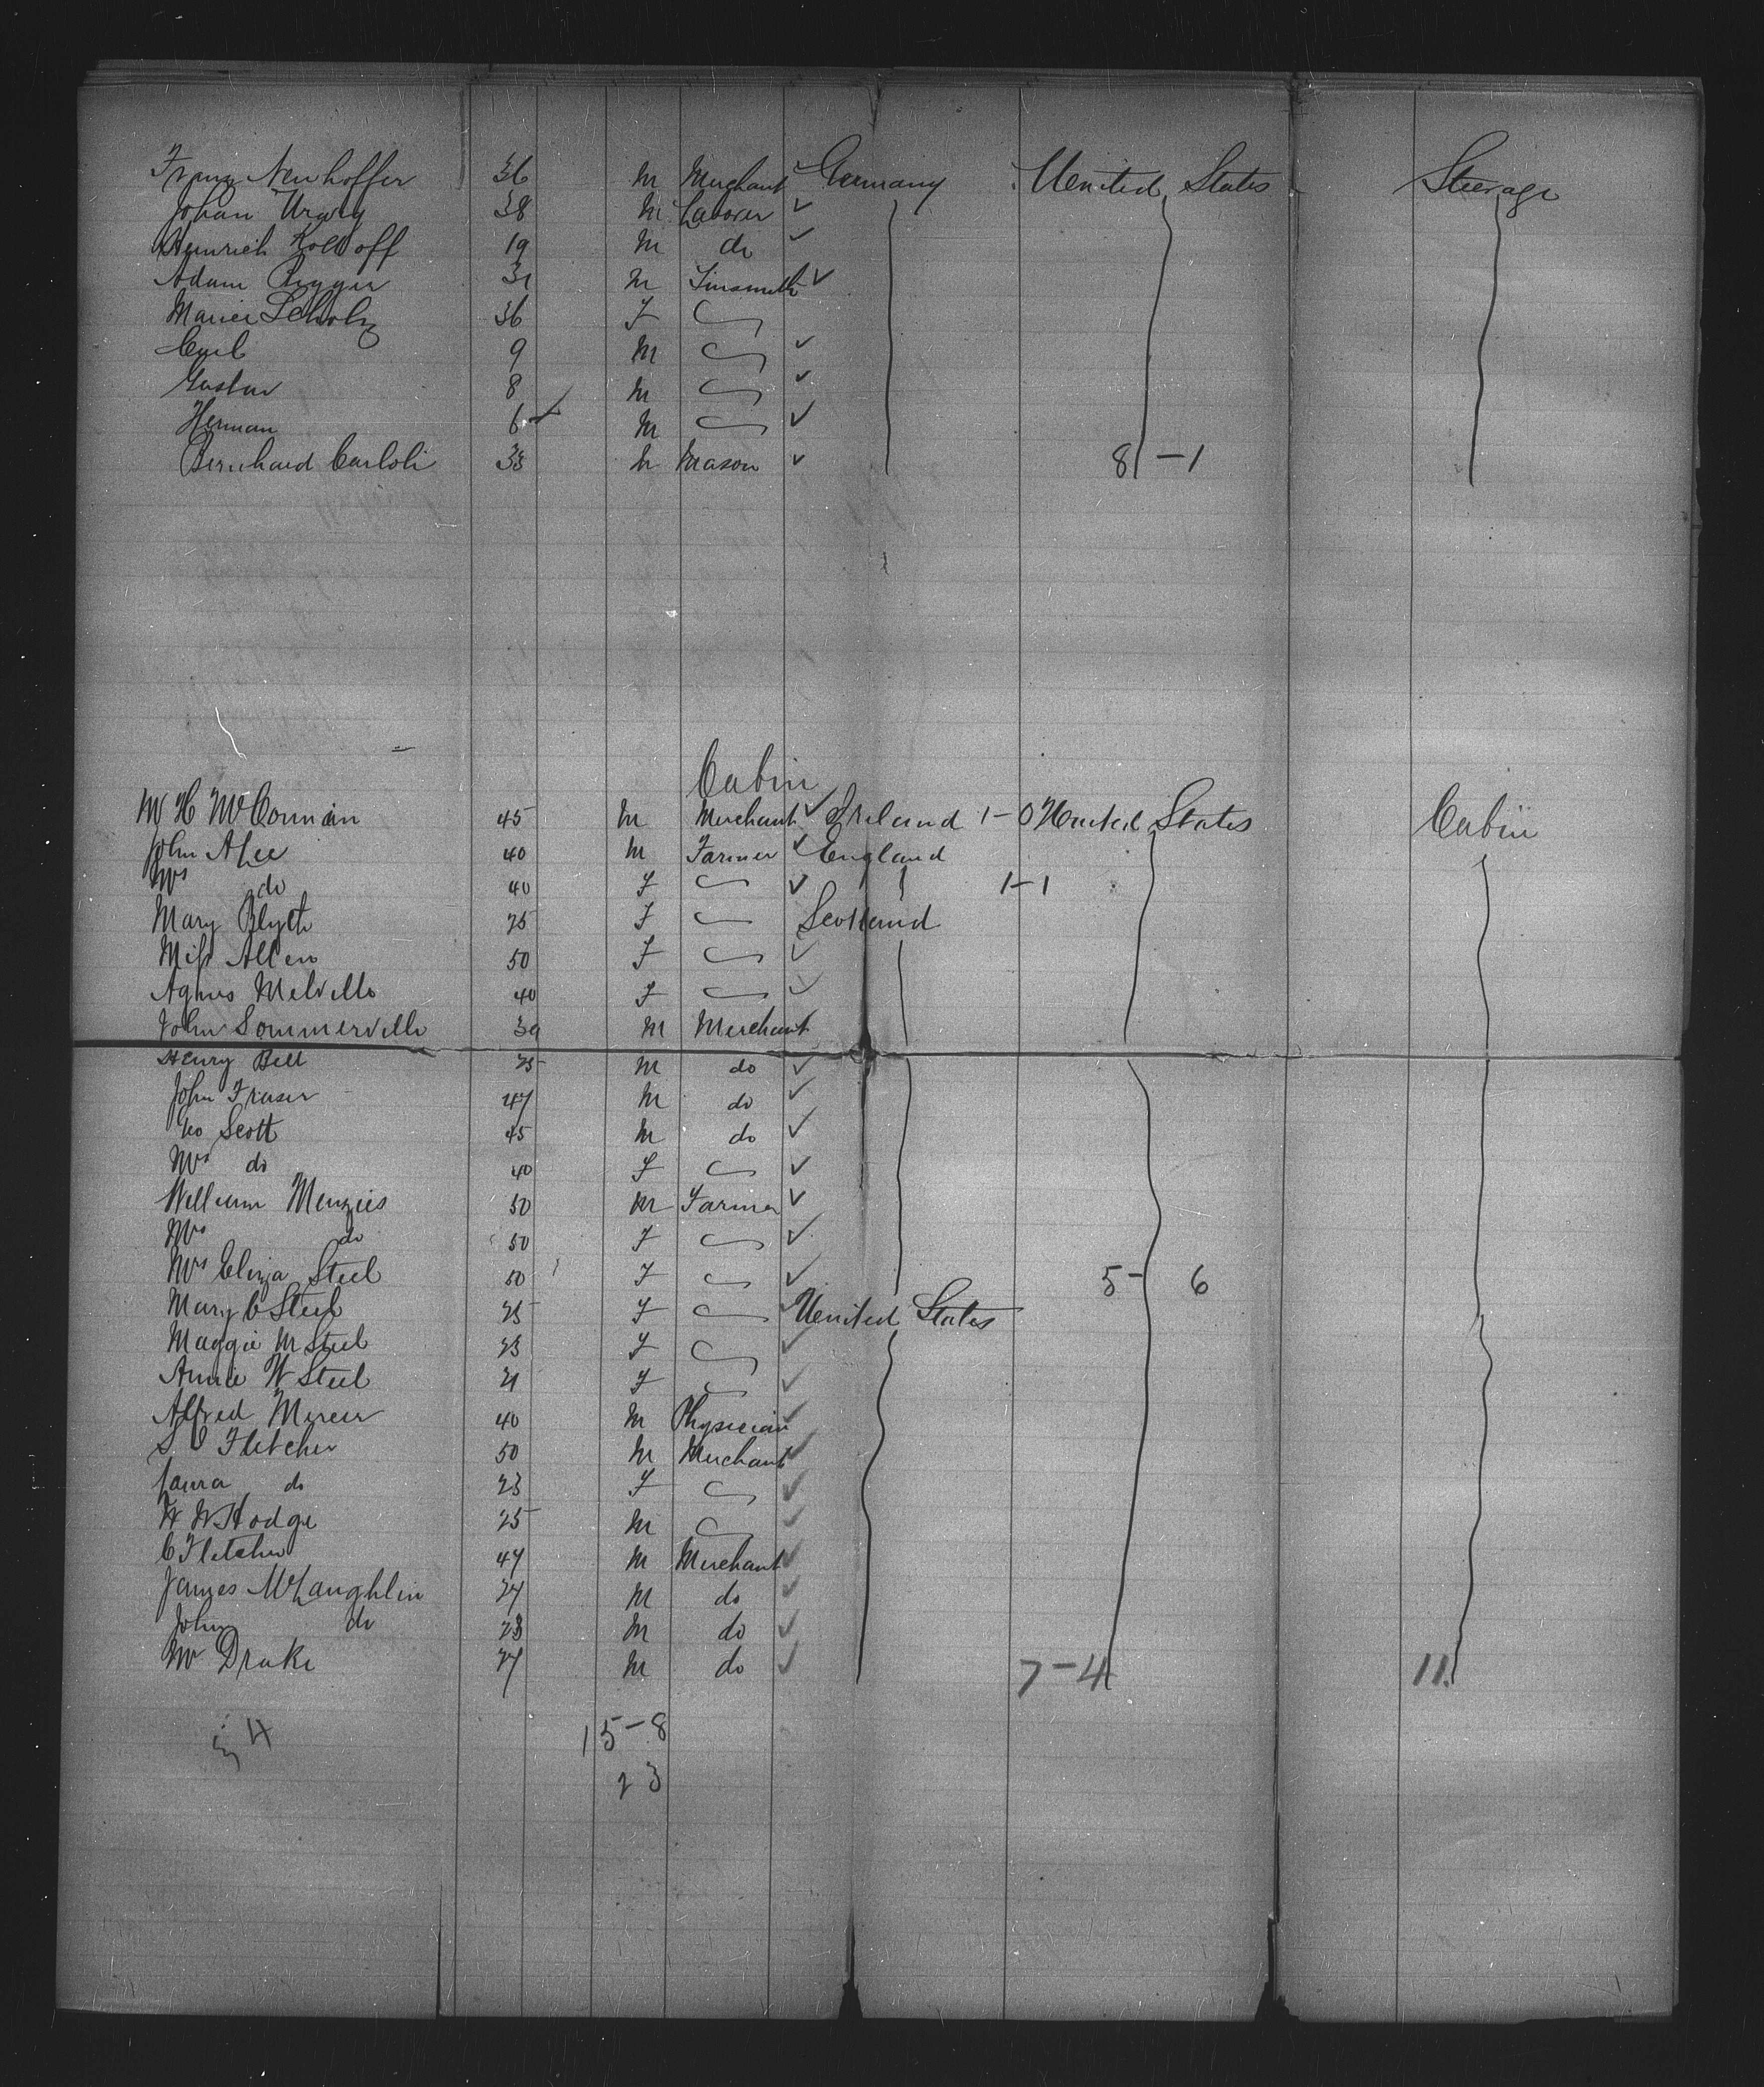 Franz Neuhoffer 36 M Merchant Germany United States Steerage
Johan Urwig 38 M Laborer
Heinrich Kolthoff 19 M do
Adam 31 M Tinsmith
Marie Scholz 36 F
Carl 9 M
Gustav 8 M
Herman 6 M
Bernhard Carloli 33 M Mason 8 - 1
Cabin
W H McCormain 45 M Merchant Ireland 1-0 United States Cabin
John Alee 40 M Farmer England
Mrs do 40 F 1-1
Mary Blyth 25 F Scotland
Miss Allen 50 F
Agnes Melville 40 F
John Sommerville 39 M Merchant
Henry Bell 25 M do
John Fraser 47 M do
Geo Scott 45 M do
Mrs do 40 F
William Menzies 50 M Farmer
Mrs do 50 F
Mrs Eliza Steel 50 F 5 - 6
Mary C Steel 25 F United States
Maggie M Steel 23 F
Annie W Steel 21 F
Alfred Mercer 40 M Physician
S C Fletcher 50 M Merchant
Laura do 23 F
W W Hodge 25 M
C Fletcher 47 M Merchant
James McLaughlin 27 M do
John do 23 M do
Mr Drake 27 M do 7-4 11
15-8
23